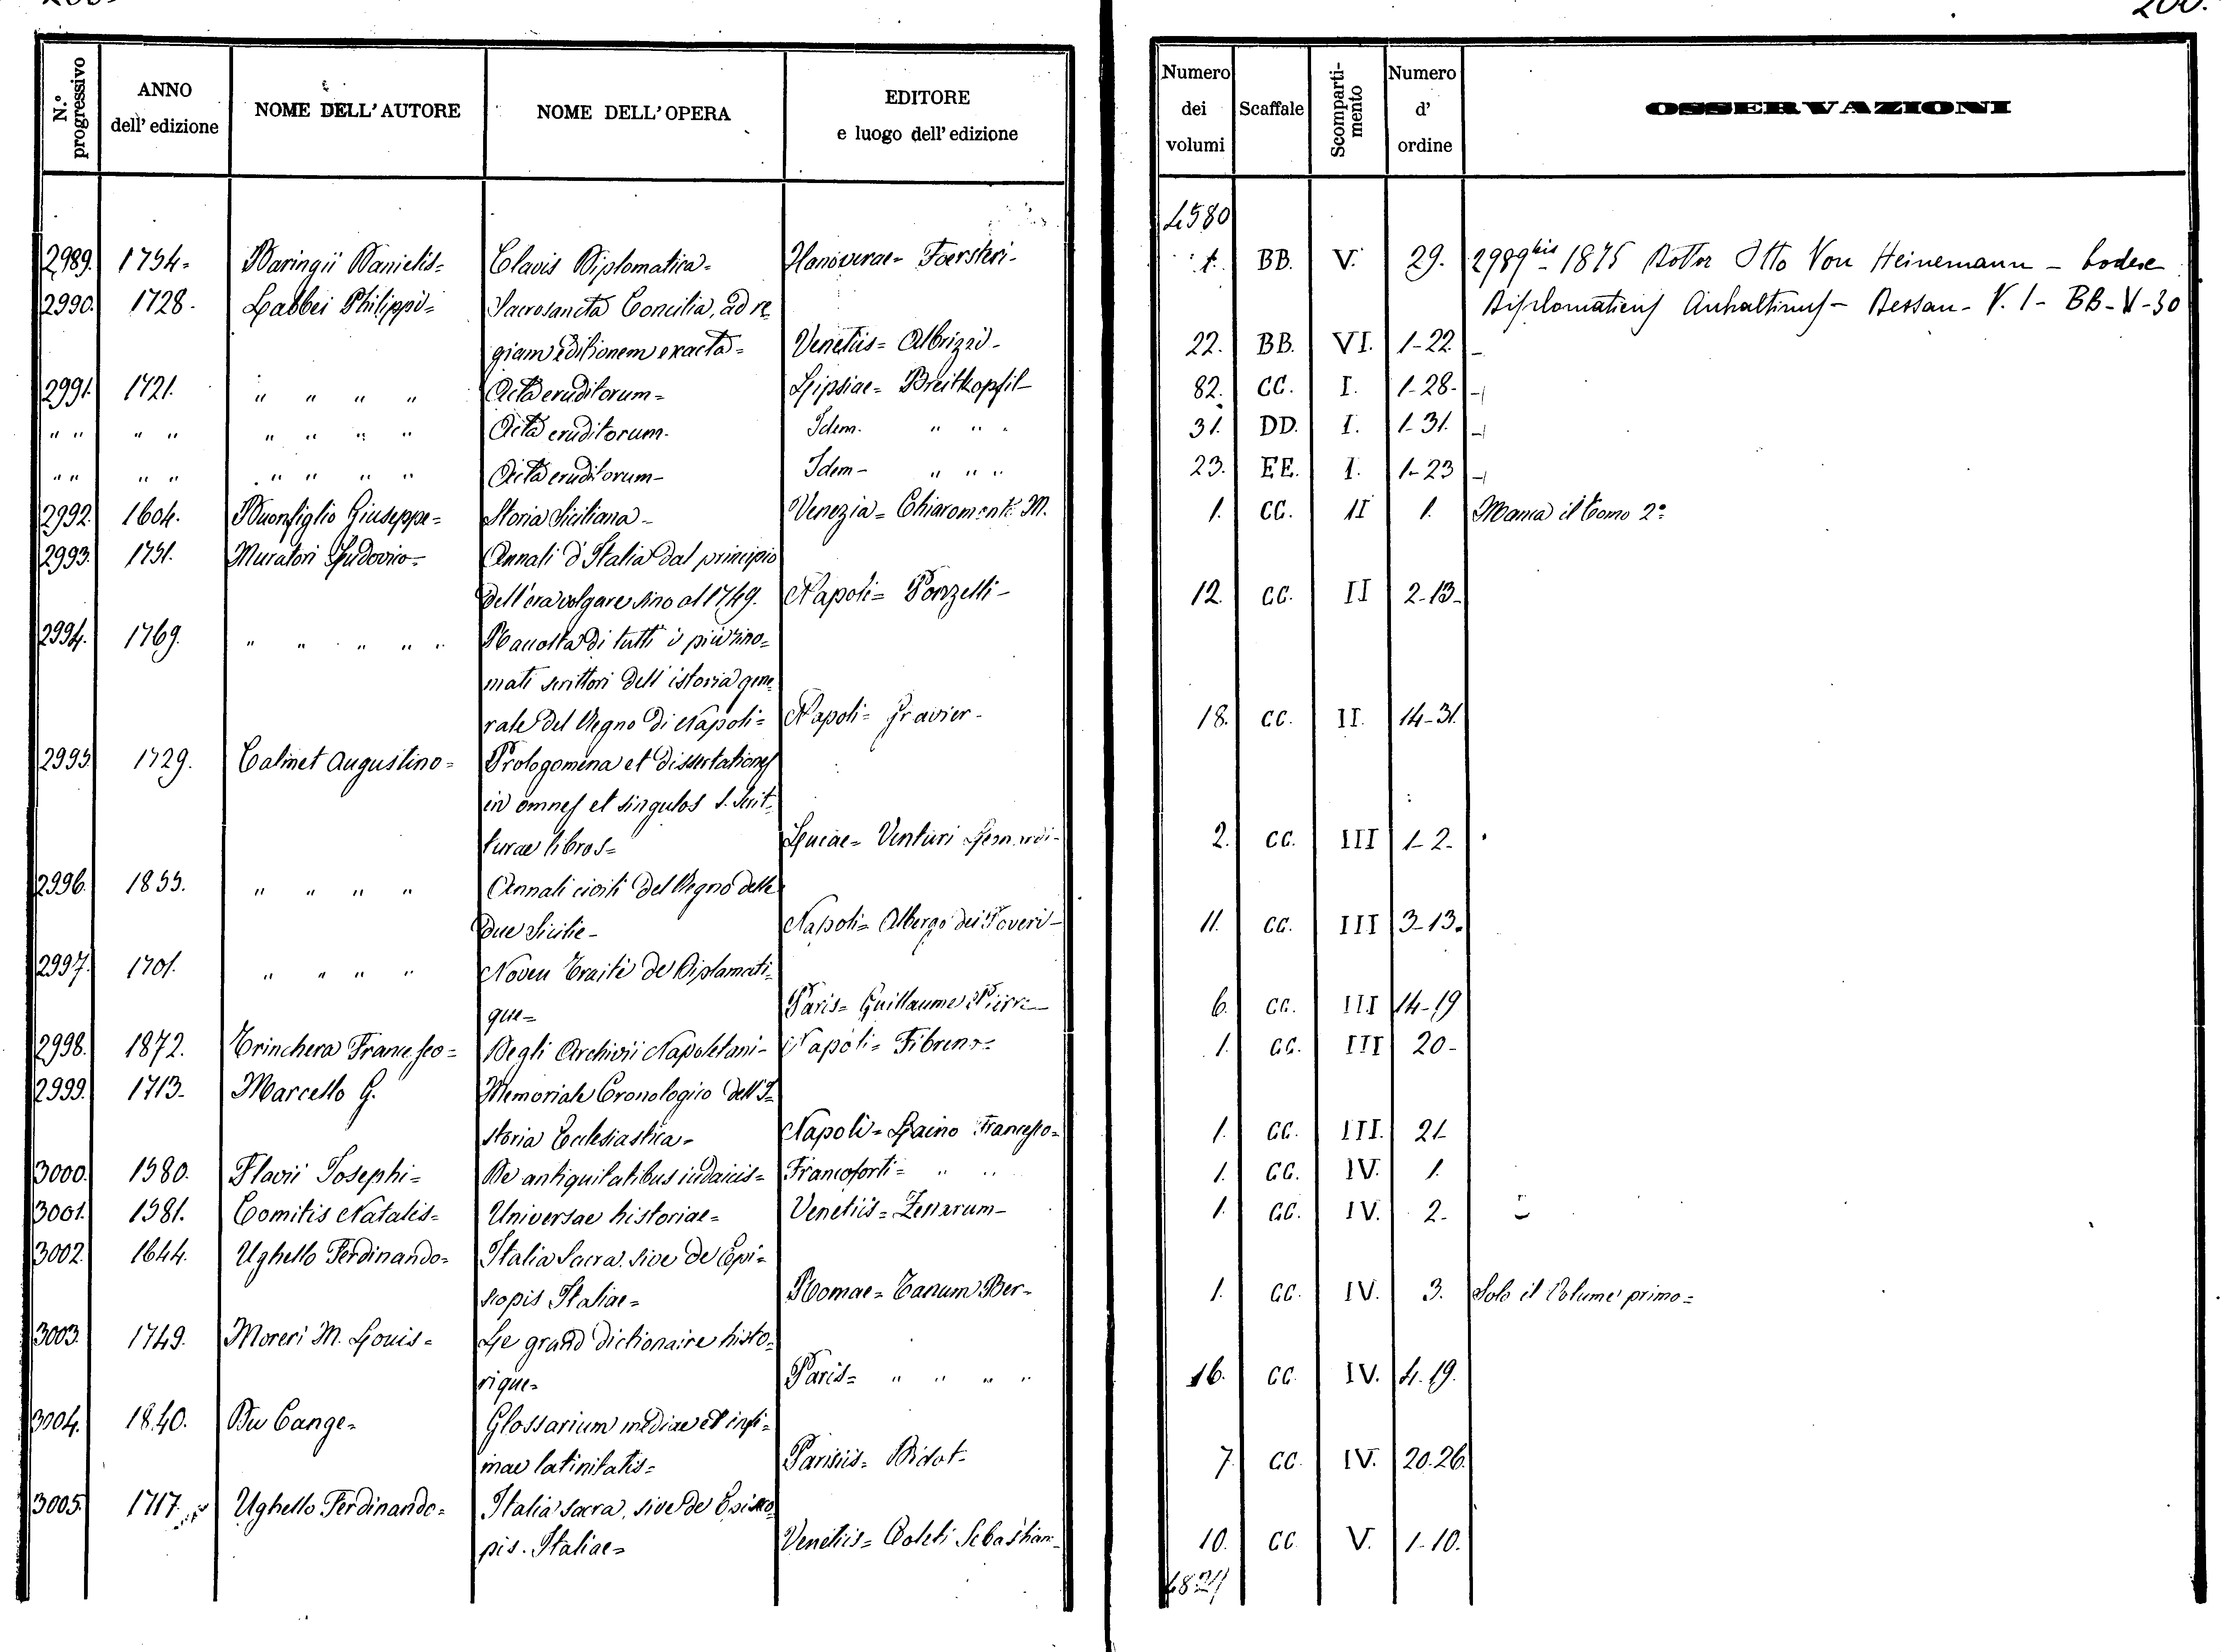 200.
N.º progressivo
ANNO dell' edizione
NOME DELL' AUTORE
NOME DELL' OPERA
EDITORE e luogo dell' edizione
Numero dei volumi
Scaffale
Scomparti-mento
Numero d' ordine
OSSERVAZIONI
4580
2989. 1754- Baringii Danielis= Clavis Diplomatica= Hanoverae= Foersteri- 1. BB. V. 29. 2989 bis 1875 Dottor Otto Von Heinemann - Codex
2990. 1728. Labbei Philippi= Sacrosancta Concilia, ad re Diplomaticus Anhaltinus - Dessau - V. 1 - BB - V - 30
giam editionem exacta= Venetiis= Albrizzi- 22. BB. VI. 1-22. -
2991. 1721. " " " " Acta eruditorum= Lipsiae= Breitkopfil- 82. CC. I. 1-28. -
" " " " " " " " Acta eruditorum. Idem. " " " 31. DD. I. 1-31. -
" " " " " " " " Acta eruditorum- Idem- " " " 23. EE. I. 1-23 -
2992. 1604. Buonfiglio Giuseppe= Storia Siciliana- Venezia= Chiaromonte M. 1. CC. II 1. Manca il tomo 2º
2993. 1751. Muratori Ludovico- Annali d'Italia dal principio
dell'era volgare sino al 1749. Napoli= Ponzelli- 12. CC. II 2-13-
2994. 1769. " " " " " Raccolta di tutti i più rino=
mati scrittori dell'istoria gene
rale del Regno di Napoli= Napoli= Gravier- 18. CC. II. 14-31.
2995 1729. Calmet Augustino= Prologomena et dissertationes
in omnes et singulos S. Scrit=
turae libros= Lucae= Venturi 2. CC. III 1-2-
2996. 1855. " " " " Annali civili del Regno delle
due Sicilie- Napoli= Albergo dei Poveri- 11. CC. III 3-13.
2997. 1701. " " " " Noveu Traité de Diplomati=
que= Paris= Guillaume Pierre- 6. CC. III 14-19
2998. 1872. Trinchera Francesco= Degli Archivii Napoletani- Napoli= Fibreno= 1. CC. III 20-
2999. 1713- Marcello G. Memoriale Cronologico dell'I=
storia Ecclesiastica- Napoli= Laino Francesco= 1. CC. III. 21-
3000. 1580. Flavii Josephi= De antiquitatibus iudaicis= Francoforti= " " 1. CC. IV. 1.
3001. 1581. Comitis Natalis= Universae historiae= Venetiis= Zenarum- 1. CC. IV. 2-
3002. 1644. Ughello Ferdinando= Italia Sacra. sive de Epi=
scopis Italiae= Romae= Tanum Ber- 1. CC. IV. 3. Solo il Volume primo=
3003. 1749. Moreri M. Louis= Le grand dictionaire histo=
rique= Paris= " " " " 16. CC. IV. 4-19.
3004. 1840. Du Cange= Glossarium mediae et infi=
mae latinitatis= Parisiis= Didot- 7. CC. IV. 20.26.
3005. 1717. Ughello Ferdinando= Italia sacra, sive de Episco
pis. Italiae= Venetiis= Coleti Sebastian- 10. CC. V. 1-10.